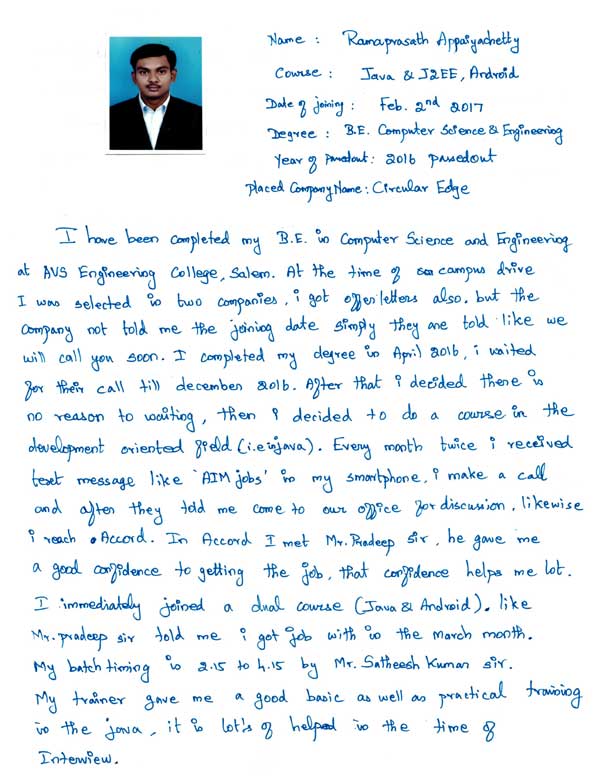 Name : Ramaprasath Appaiyachetty
Course : Java & J2EE, Android
Date of joining : Feb. 2nd 2017
Degree : B.E. Computer Science & Engineering
Year of passedout : 2016 passedout
Placed Company Name : Circular Edge
I have been completed my B.E. in Computer Science and Engineering
at AVS Engineering College, Salem. At the time of campus drive
I was selected in two companies, i got offer letters also. but the
company not told me the joining date simply they are told like we
will call you soon. I completed my degree in April 2016, i waited
for their call till december 2016. After that i decided there is
no reason to waiting, then i decided to do a course in the
development oriented field (i.e in java). Every month twice i received
text message like 'AIM jobs' in my smartphone, i make a call
and after they told me come to our office for discussion, likewise
i reach Accord. In Accord I met Mr. Pradeep sir, he gave me
a good confidence to getting the job, that confidence helps me lot.
I immediately joined a dual course (Java & Android). like
Mr. pradeep sir told me i got job with in the march month.
My batch timing is 2.15 to 4.15 by Mr. Satheesh Kumar sir.
My trainer gave me a good basic as well as practical training
in the java, it is lot's of helped in the time of
Interview.